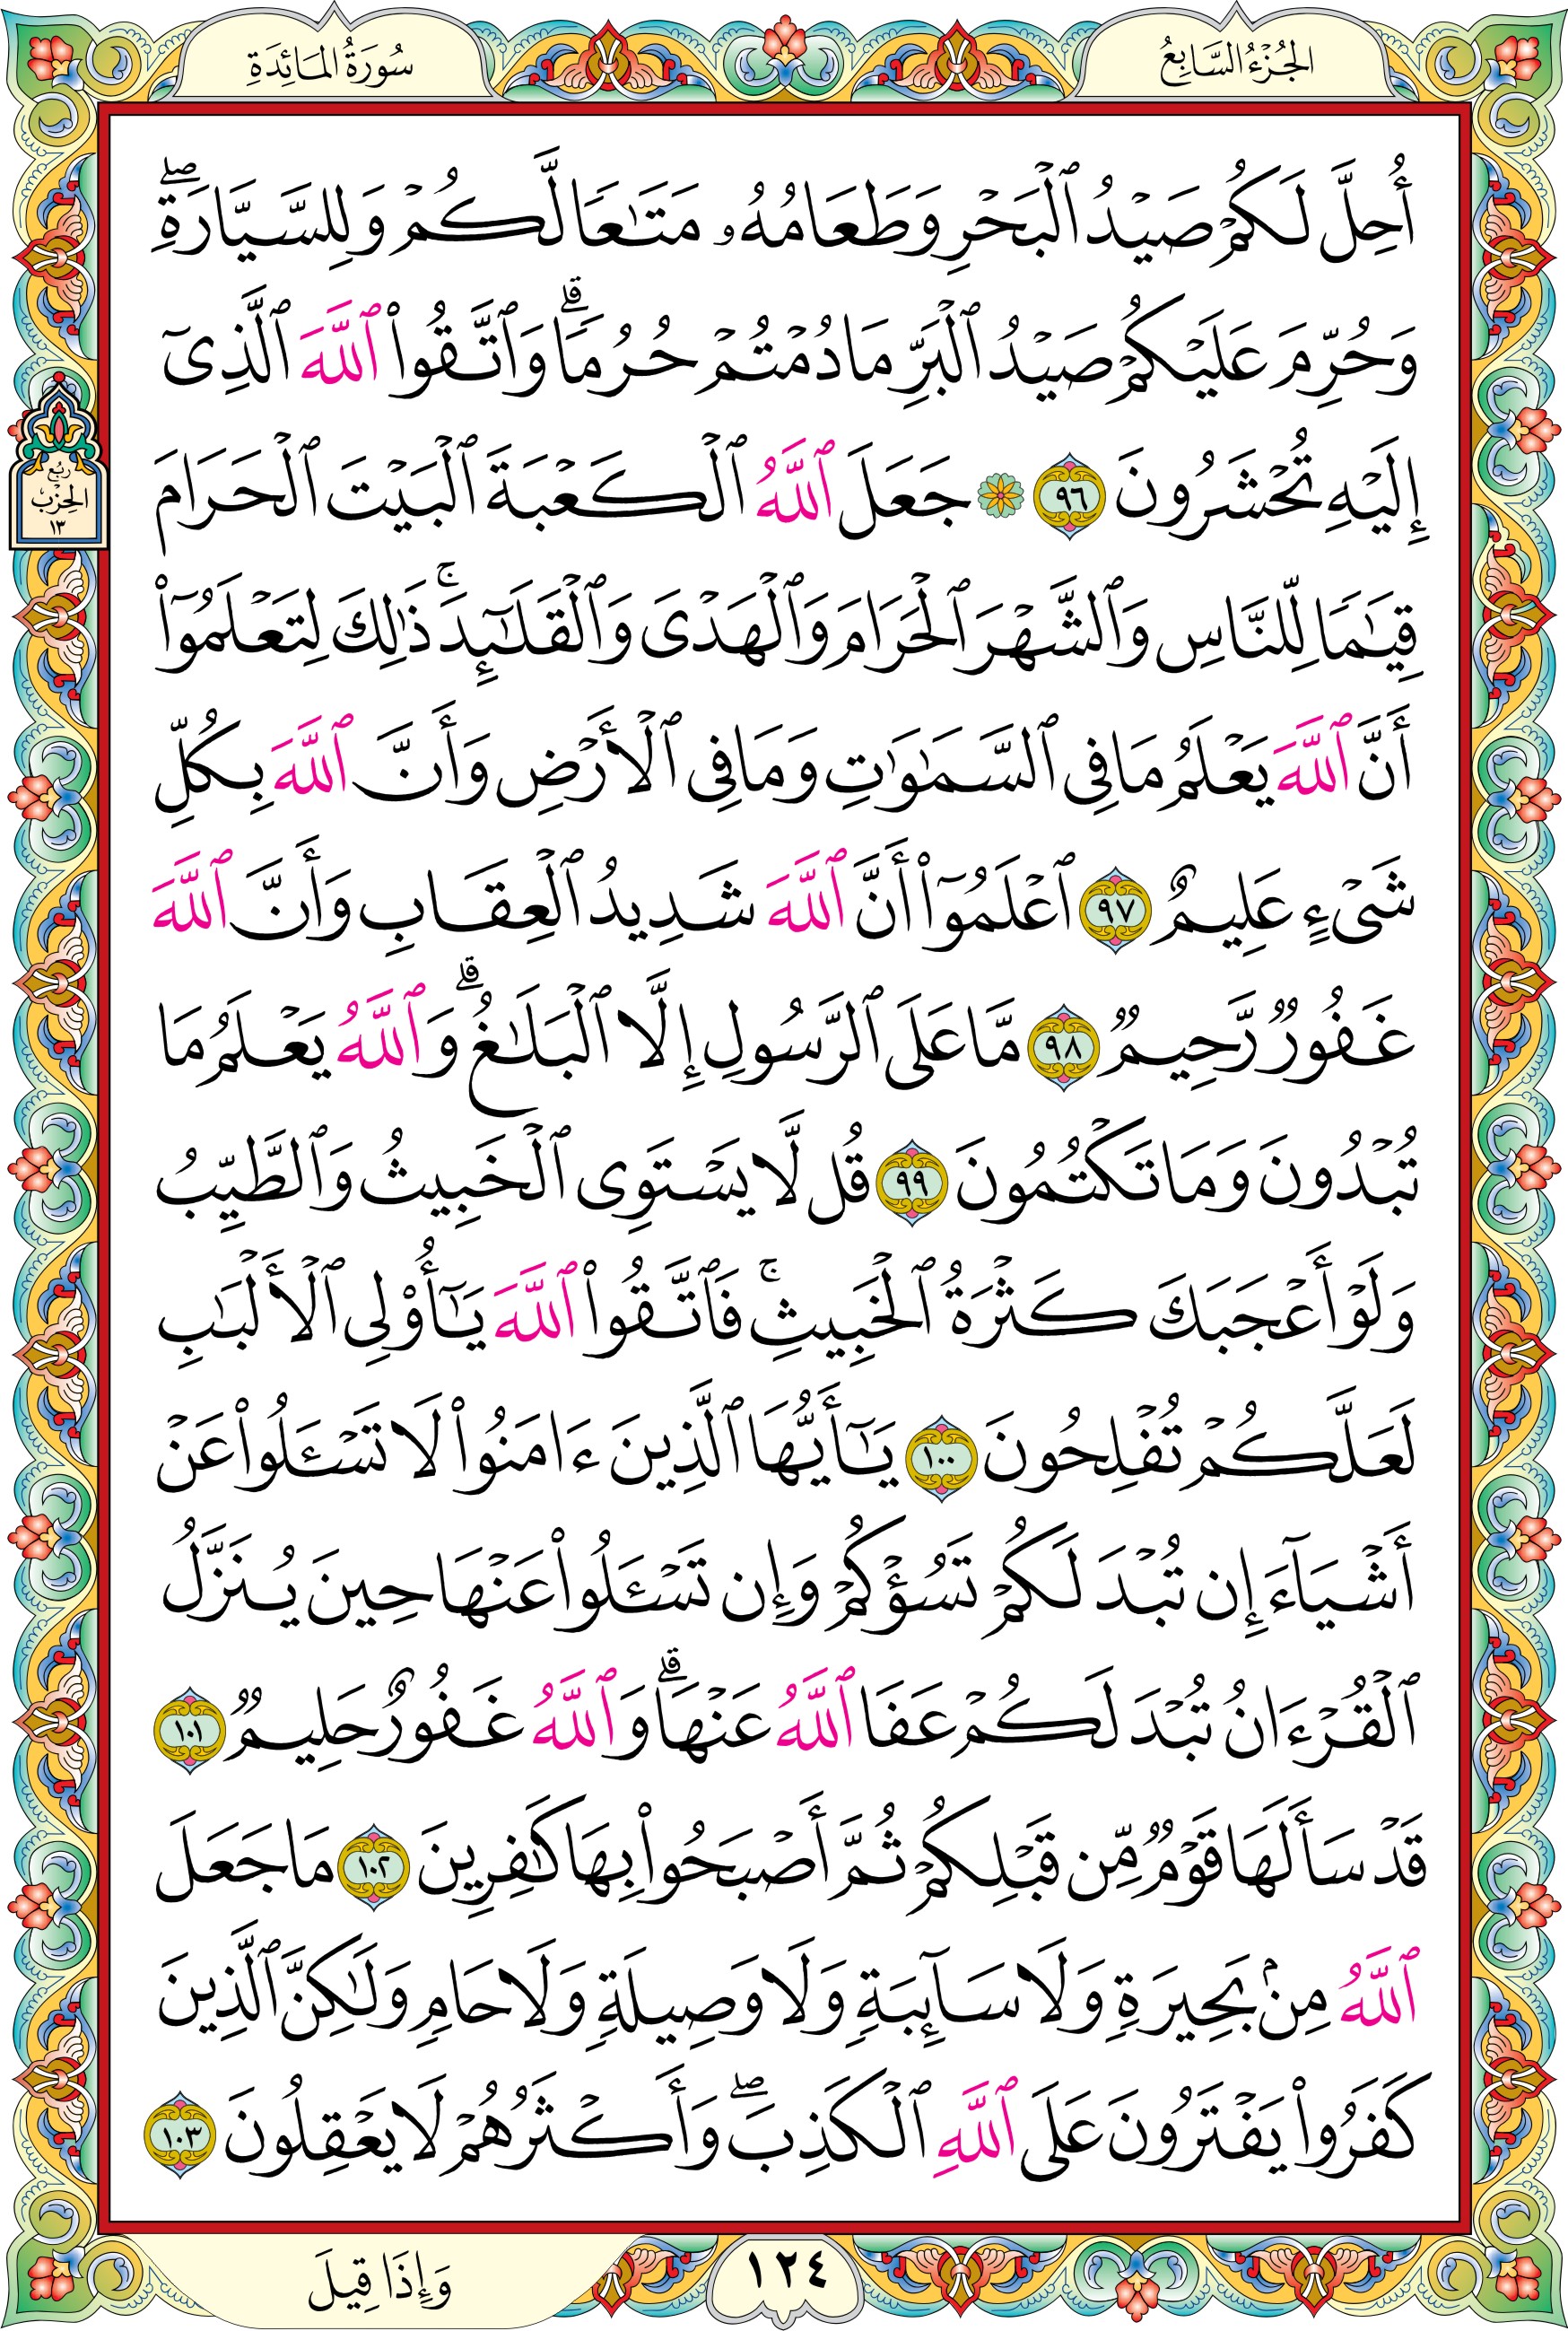 الجُزْءُ السَّابِعُ
سُورَةُ المَائِدَةِ
أُحِلَّ لَكُمْ صَيْدُ ٱلْبَحْرِ وَطَعَامُهُۥ مَتَٰعًا لَّكُمْ وَلِلسَّيَّارَةِۖ
وَحُرِّمَ عَلَيْكُمْ صَيْدُ ٱلْبَرِّ مَا دُمْتُمْ حُرُمًاۗ وَٱتَّقُوا۟ ٱللَّهَ ٱلَّذِىٓ
إِلَيْهِ تُحْشَرُونَ ٩٦ ۞ جَعَلَ ٱللَّهُ ٱلْكَعْبَةَ ٱلْبَيْتَ ٱلْحَرَامَ
رُبُع
الحِزْب
١٣
قِيَٰمًا لِّلنَّاسِ وَٱلشَّهْرَ ٱلْحَرَامَ وَٱلْهَدْىَ وَٱلْقَلَٰٓئِدَۚ ذَٰلِكَ لِتَعْلَمُوٓا۟
أَنَّ ٱللَّهَ يَعْلَمُ مَا فِى ٱلسَّمَٰوَٰتِ وَمَا فِى ٱلْأَرْضِ وَأَنَّ ٱللَّهَ بِكُلِّ
شَىْءٍ عَلِيمٌ ٩٧ ٱعْلَمُوٓا۟ أَنَّ ٱللَّهَ شَدِيدُ ٱلْعِقَابِ وَأَنَّ ٱللَّهَ
غَفُورٌ رَّحِيمٌ ٩٨ مَّا عَلَى ٱلرَّسُولِ إِلَّا ٱلْبَلَٰغُۗ وَٱللَّهُ يَعْلَمُ مَا
تُبْدُونَ وَمَا تَكْتُمُونَ ٩٩ قُل لَّا يَسْتَوِى ٱلْخَبِيثُ وَٱلطَّيِّبُ
وَلَوْ أَعْجَبَكَ كَثْرَةُ ٱلْخَبِيثِۚ فَٱتَّقُوا۟ ٱللَّهَ يَٰٓأُو۟لِى ٱلْأَلْبَٰبِ
لَعَلَّكُمْ تُفْلِحُونَ ١٠٠ يَٰٓأَيُّهَا ٱلَّذِينَ ءَامَنُوا۟ لَا تَسْـَٔلُوا۟ عَنْ
أَشْيَآءَ إِن تُبْدَ لَكُمْ تَسُؤْكُمْ وَإِن تَسْـَٔلُوا۟ عَنْهَا حِينَ يُنَزَّلُ
ٱلْقُرْءَانُ تُبْدَ لَكُمْ عَفَا ٱللَّهُ عَنْهَاۗ وَٱللَّهُ غَفُورٌ حَلِيمٌ ١٠١
قَدْ سَأَلَهَا قَوْمٌ مِّن قَبْلِكُمْ ثُمَّ أَصْبَحُوا۟ بِهَا كَٰفِرِينَ ١٠٢ مَا جَعَلَ
ٱللَّهُ مِنۢ بَحِيرَةٍ وَلَا سَآئِبَةٍ وَلَا وَصِيلَةٍ وَلَا حَامٍ وَلَٰكِنَّ ٱلَّذِينَ
كَفَرُوا۟ يَفْتَرُونَ عَلَى ٱللَّهِ ٱلْكَذِبَۖ وَأَكْثَرُهُمْ لَا يَعْقِلُونَ ١٠٣
١٢٤
وَإِذَا قِيلَ